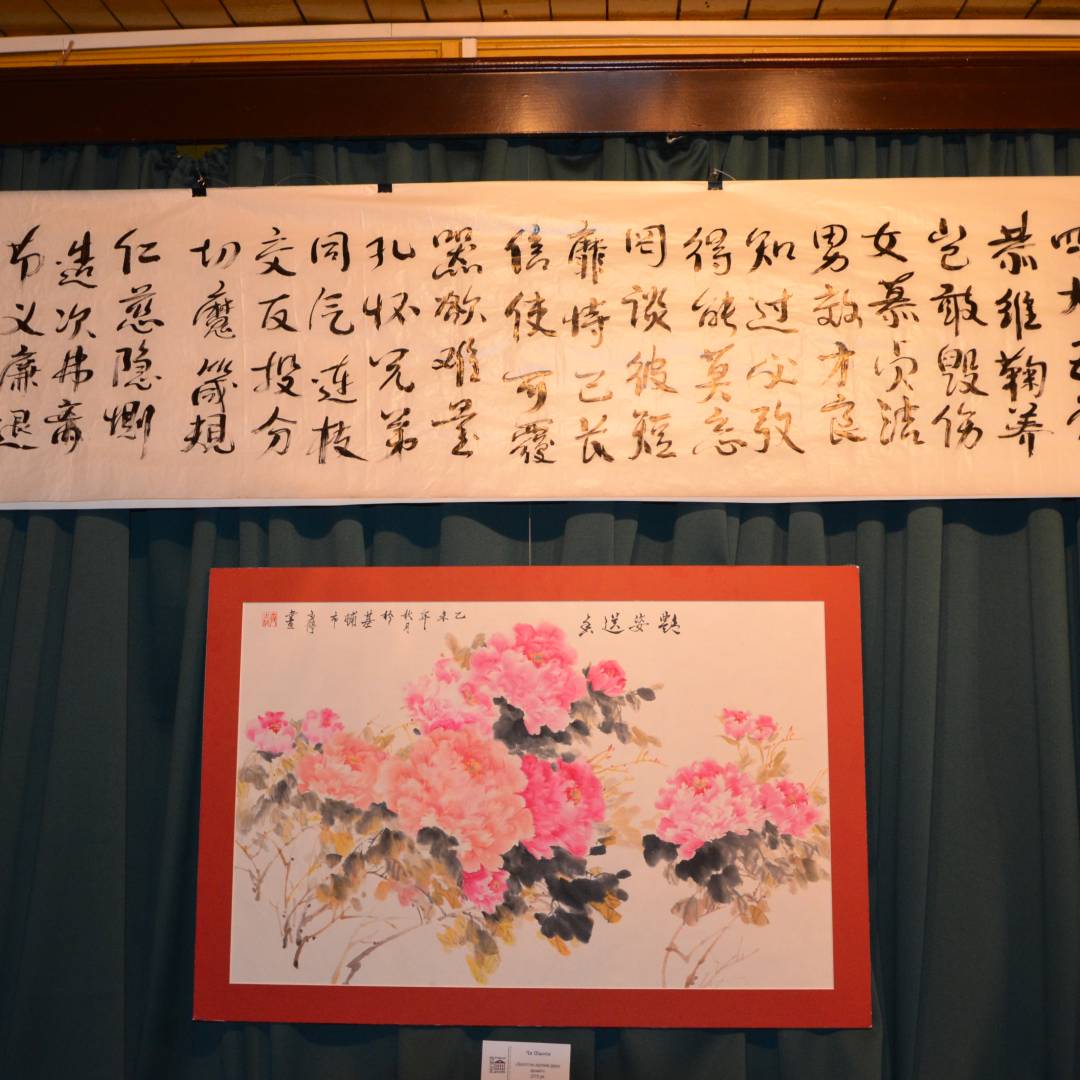 四大五常
恭维鞠养
岂敢毁伤
女慕贞洁
男效才良
知过必改
得能莫忘
罔谈彼短
靡恃己长
信使可覆
器欲难量
孔怀兄弟
同气连枝
交友投分
切磨箴规
仁慈隐恻
造次弗离
节义廉退
艷姿送香
乙未年秋月於基輔市
畫